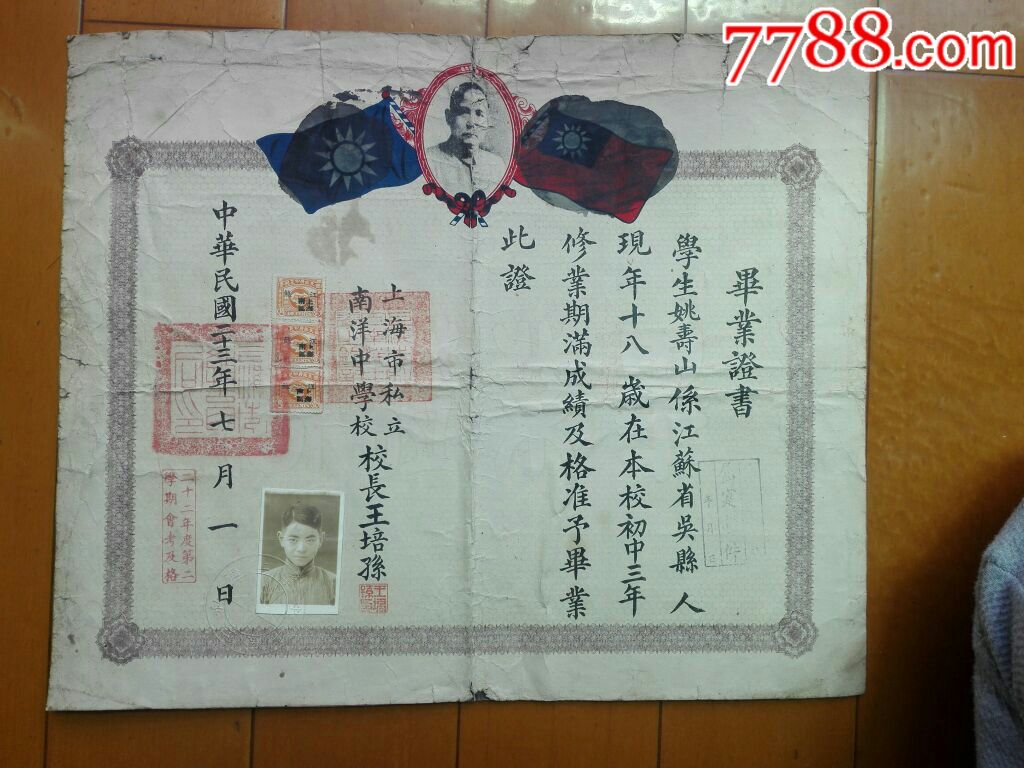 7788.com
畢業證書
學生姚壽山係江蘇省吳縣人
現年十八歲在本校初中三年
修業期滿成績及格准予畢業
此證
上海市私立
南洋中學校
校長王培孫
中華民國二十三年七月一日
二十二年度第二
學期會考及格